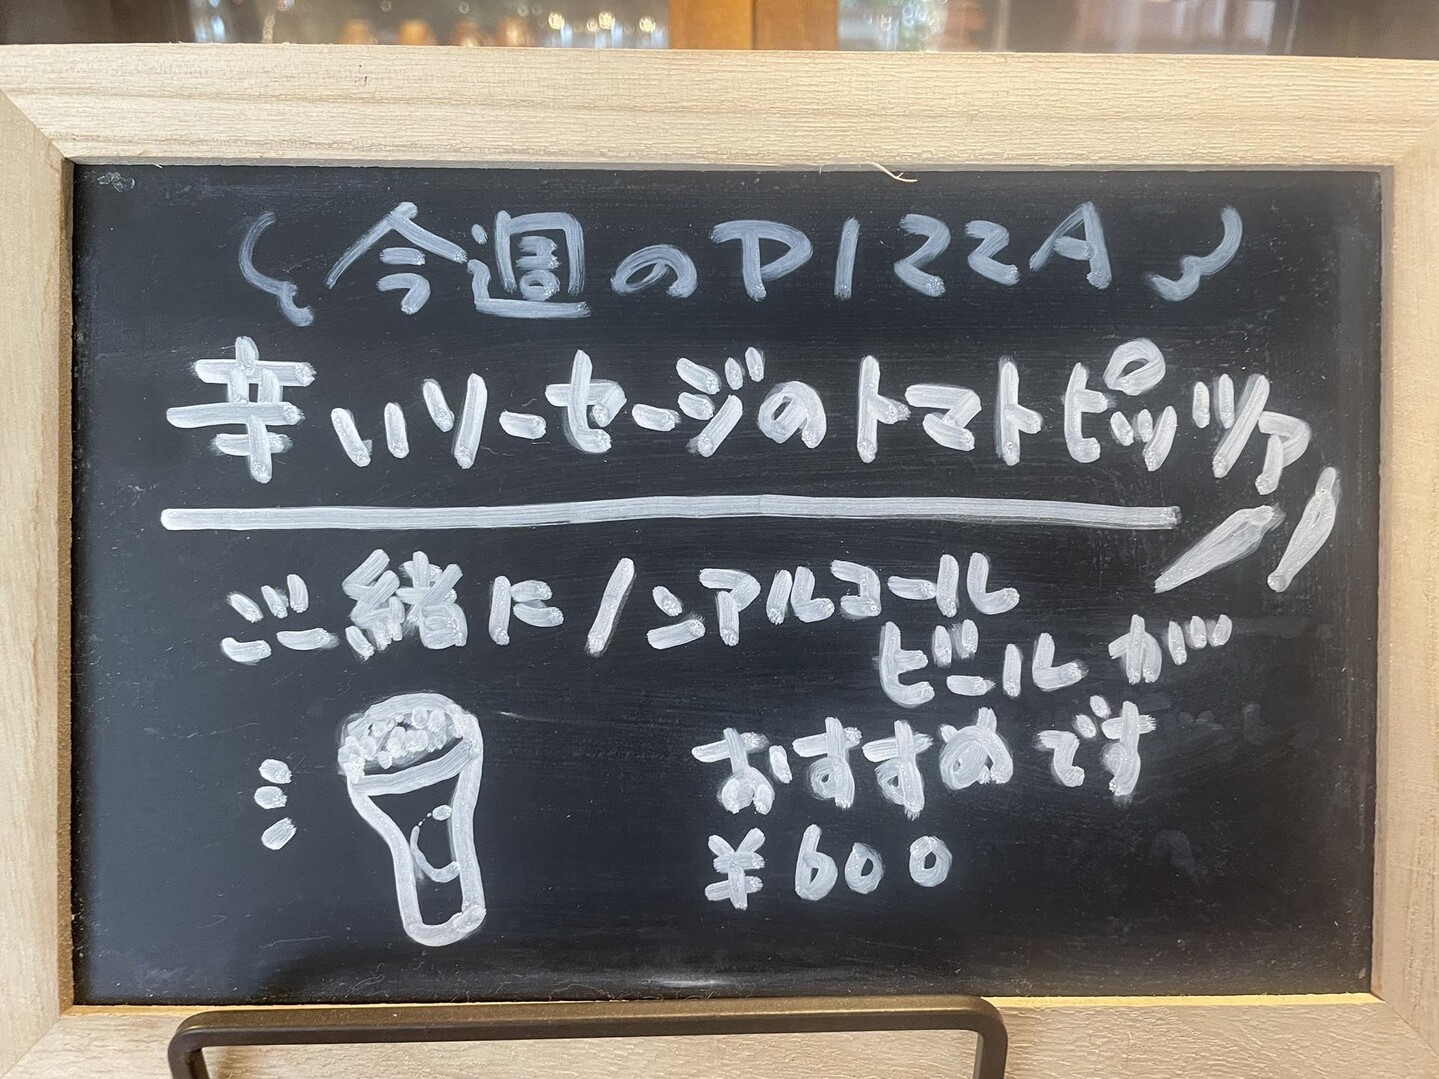 今週のPIZZA
辛いソーセージのトマトピッツァ
ご一緒にノンアルコール
ビールが
おすすめです
¥600